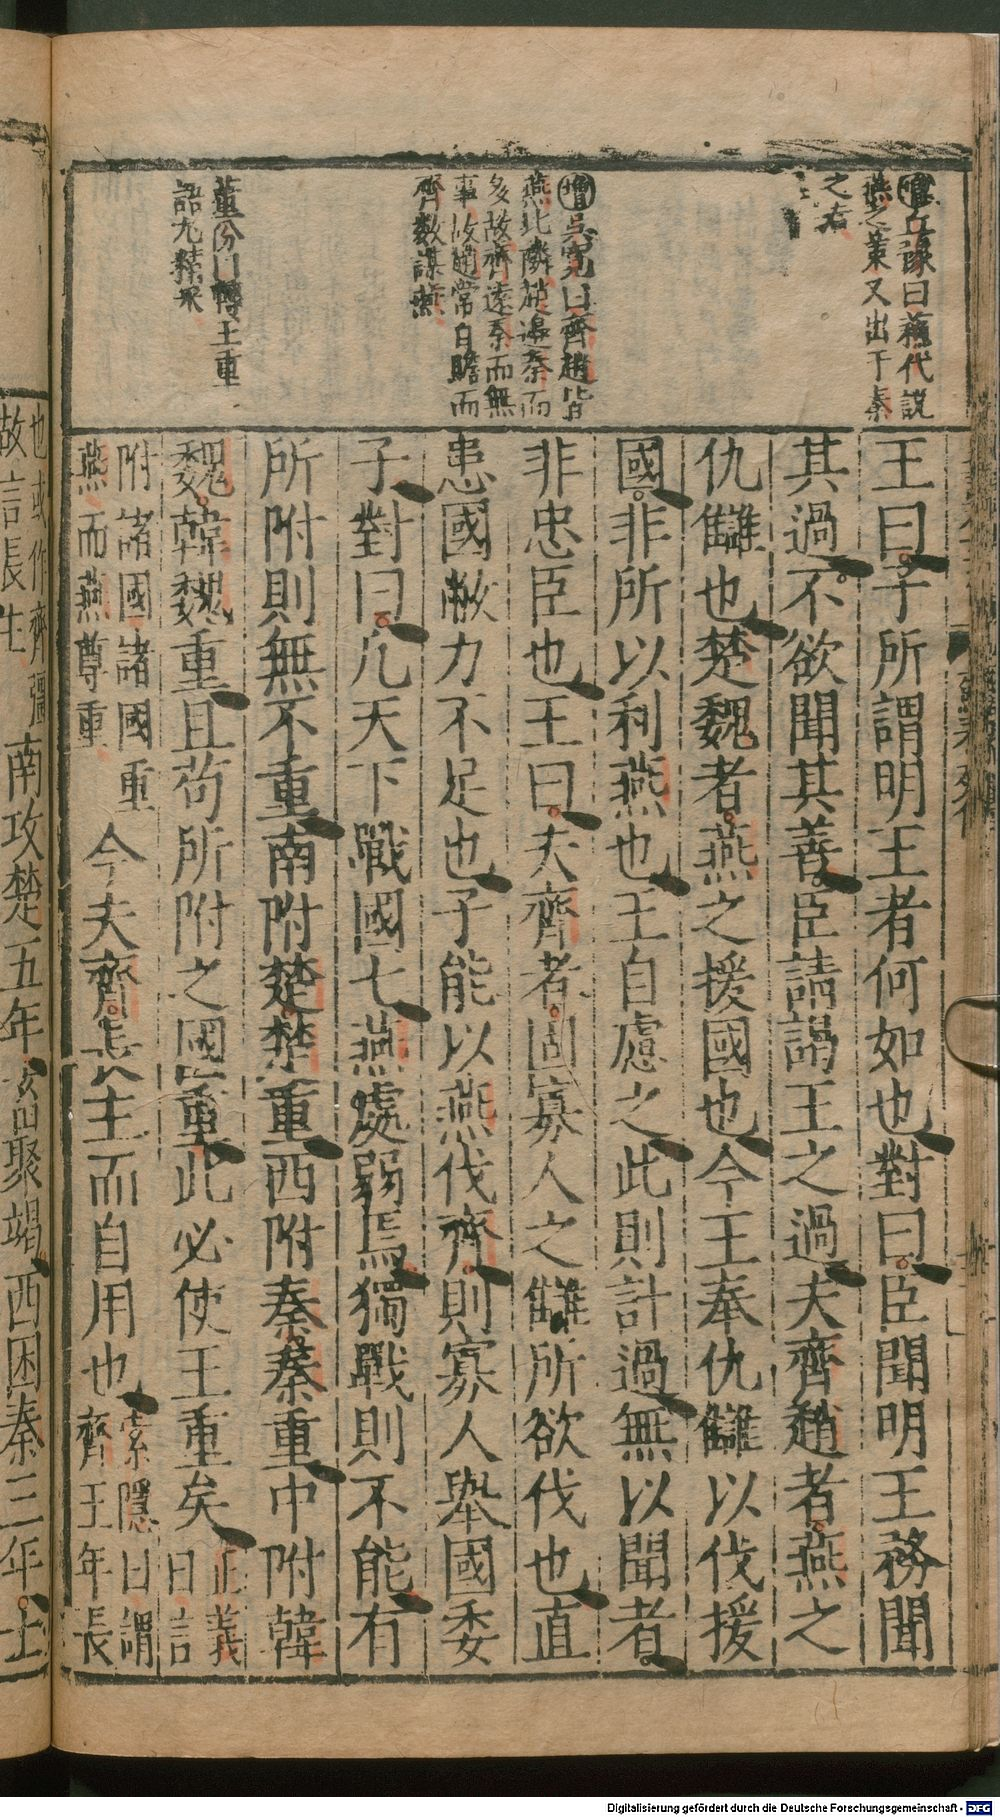 增丘濬曰蘇代説
燕之策又出于秦
之右
增吳寬曰齊趙皆
燕北隣趙邊秦而
多故齊遠秦而無
事故趙常自贍而
齊數謀燕
董份曰轉王重
語尤精采
王曰子所謂明王者何如也對曰臣聞明王務聞
其過不欲聞其善臣請謁王之過夫齊趙者燕之
仇讎也楚魏者燕之援國也今王奉仇讎以伐援
國非所以利燕也王自慮之此則計過無以聞者
非忠臣也王曰夫齊者固寡人之讎所欲伐也直
患國敝力不足也子能以燕伐齊則寡人舉國委
子對曰凡天下戰國七燕處弱焉獨戰則不能有
所附則無不重南附楚楚重西附秦秦重中附韓
魏韓魏重且苟所附之國重此必使王重矣正義
曰言
附諸國諸國重
燕而燕尊重
今夫齊長主而自用也索隱曰謂
齊王年長
也或作齊彊
故言長生
南攻楚五年畜聚竭西困秦三年士
Digitalisierung gefördert durch die Deutsche Forschungsgemeinschaft - DFG